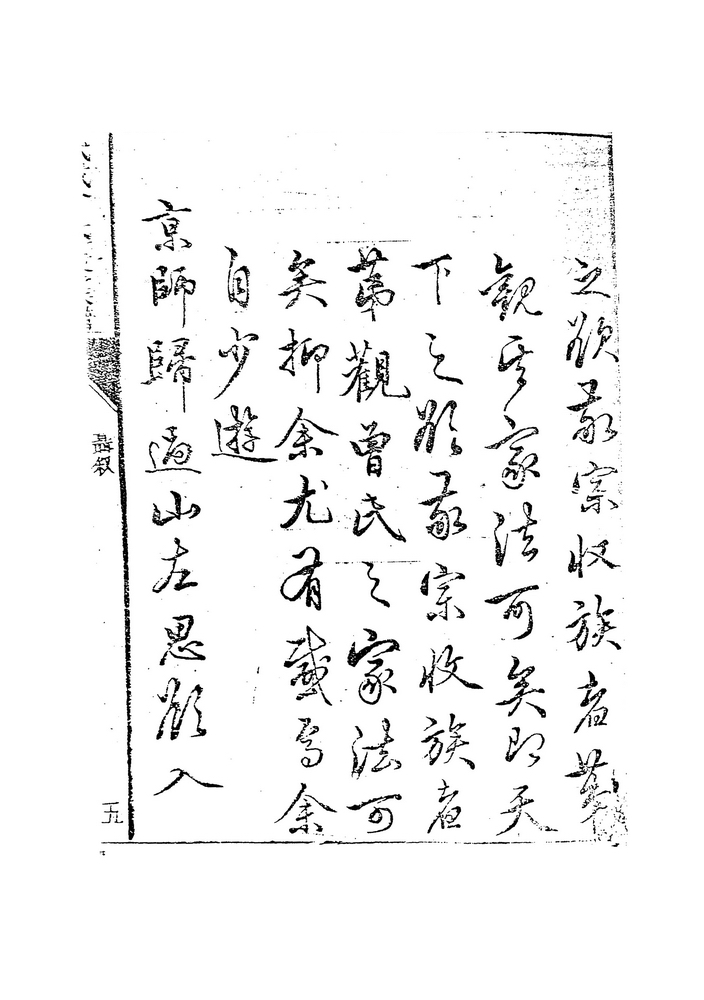 之欲敬宗收族者苐
觀其家法可矣即天
下之欲敬宗收族者
苐觀曾氏之家法可
矣抑余尤有感焉余
自少遊
京師歸過山左思欲入
五